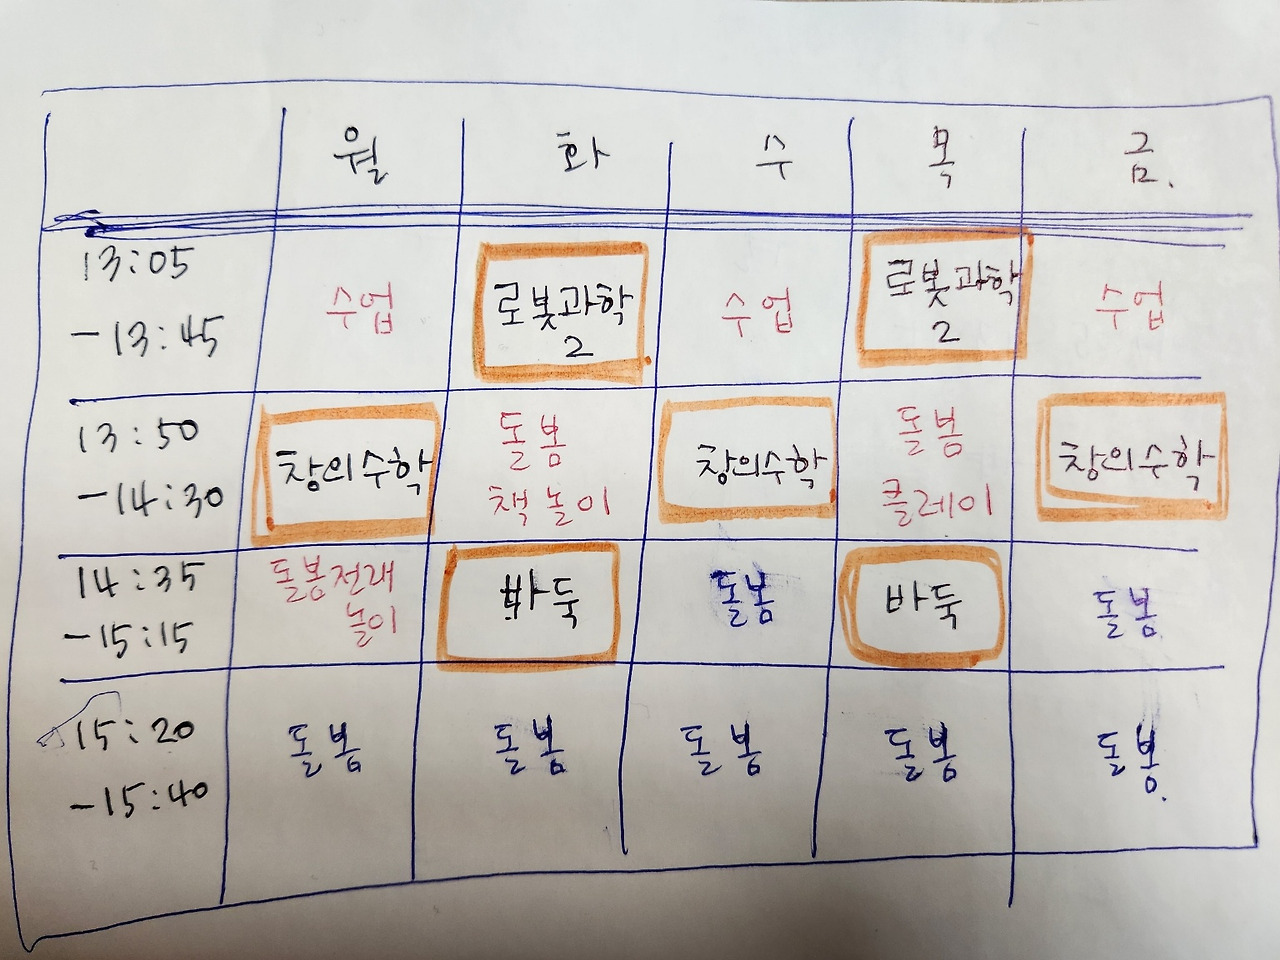 월 화 수 목 금.
13:05
-13:45
수업
로봇과학
2
수업
로봇과학
2
수업
13:50
-14:30
창의수학
돌봄
책놀이
창의수학
돌봄
클레이
창의수학
14:35
-15:15
돌봄전래
놀이
바둑
돌봄
바둑
돌봄
15:20
-15:40
돌봄
돌봄
돌봄
돌봄
돌봄.